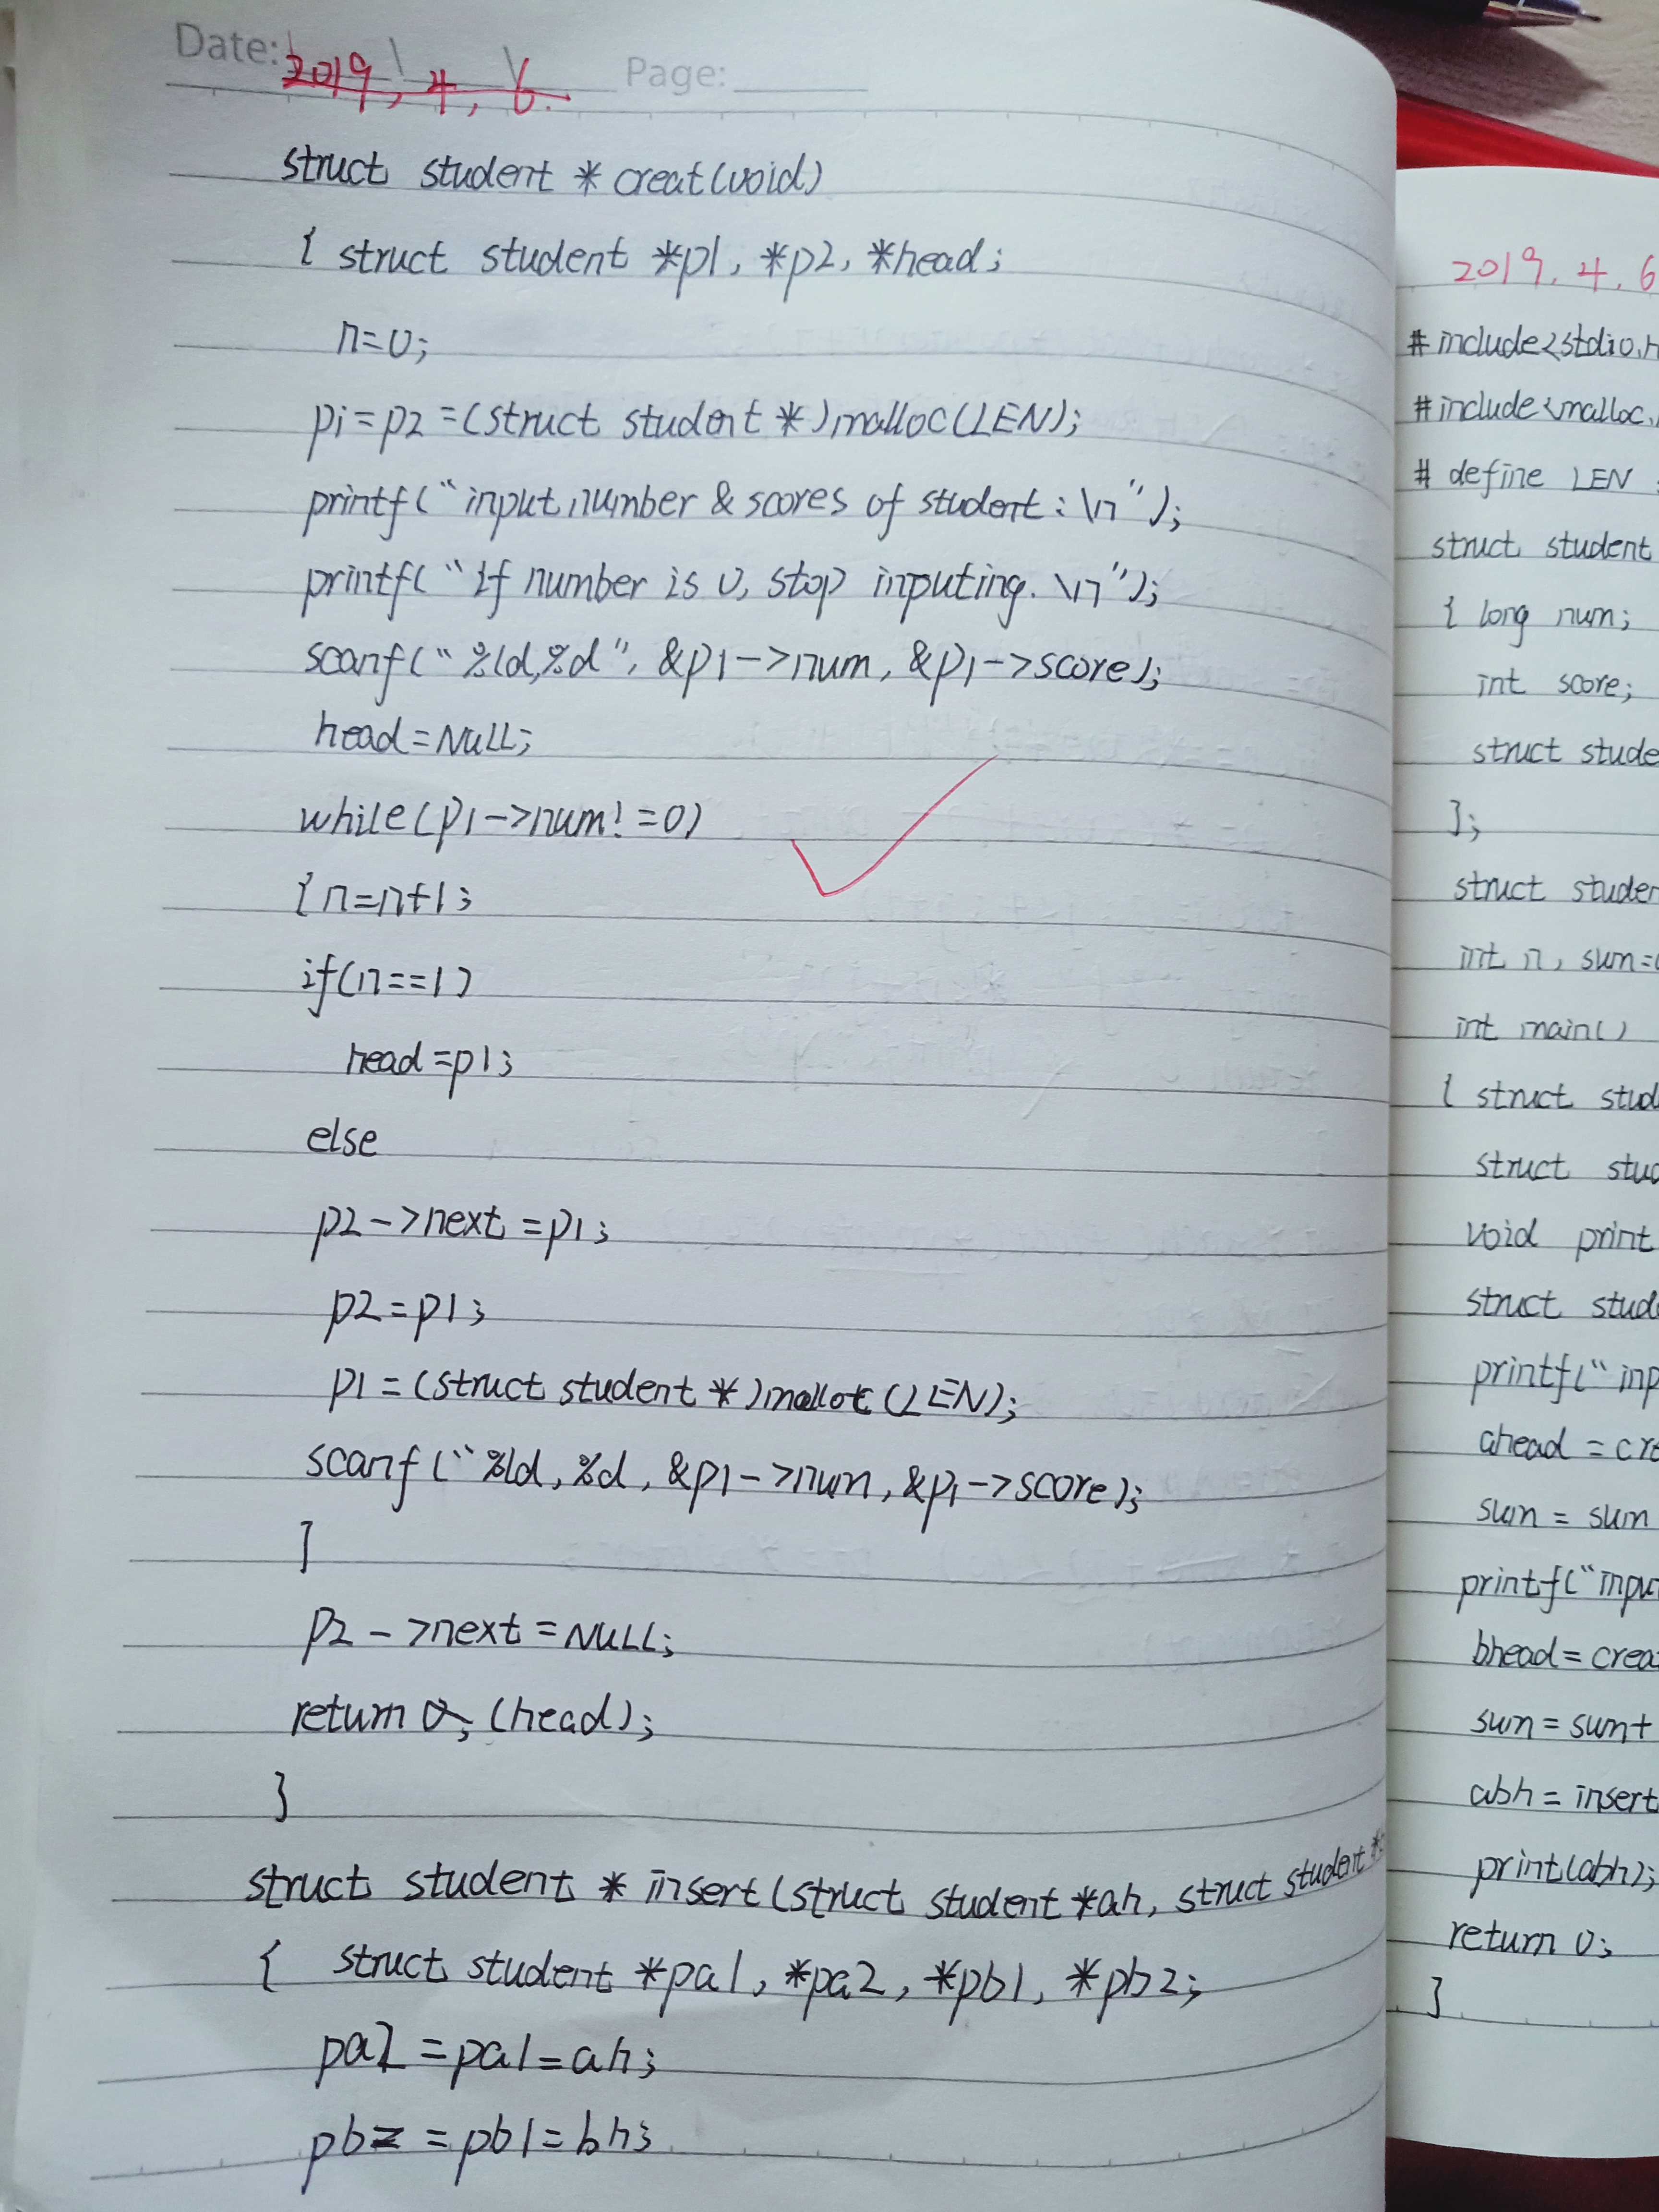 Date: 2019, 4, 6. Page:
struct student * creat(void)
{ struct student *p1, *p2, *head;
n=0;
pi=p2=(struct student *)malloc(LEN);
printf("input number & scores of student:\n");
printf("if number is 0, stop inputing.\n");
scanf("%ld,%d", &p1->num, &p1->score);
head=NULL;
while(p1->num!=0)
{n=n+1;
if(n==1)
head=p1;
else
p2->next=p1;
p2=p1;
p1=(struct student *)malloc(LEN);
scanf("%ld,%d, &p1->num, &p1->score);
}
p2->next=NULL;
return (head);
}
struct student * insert(struct student *ah, struct student *
{ struct student *pa1, *pa2, *pb1, *pb2;
pa2=pa1=ah;
pb2=pb1=bh;
2019.4.6
#include<stdio.h
#include<malloc.
# define LEN
struct student
{ long num;
int score;
struct stude
};
struct studen
int n, sum=
int main()
{ struct stud
struct stud
void print
struct stude
printf("inp
ahead = cre
sum = sum
printf("inpu
bhead=crea
sum=sum+
abh=insert
print(abh);
return 0;
}